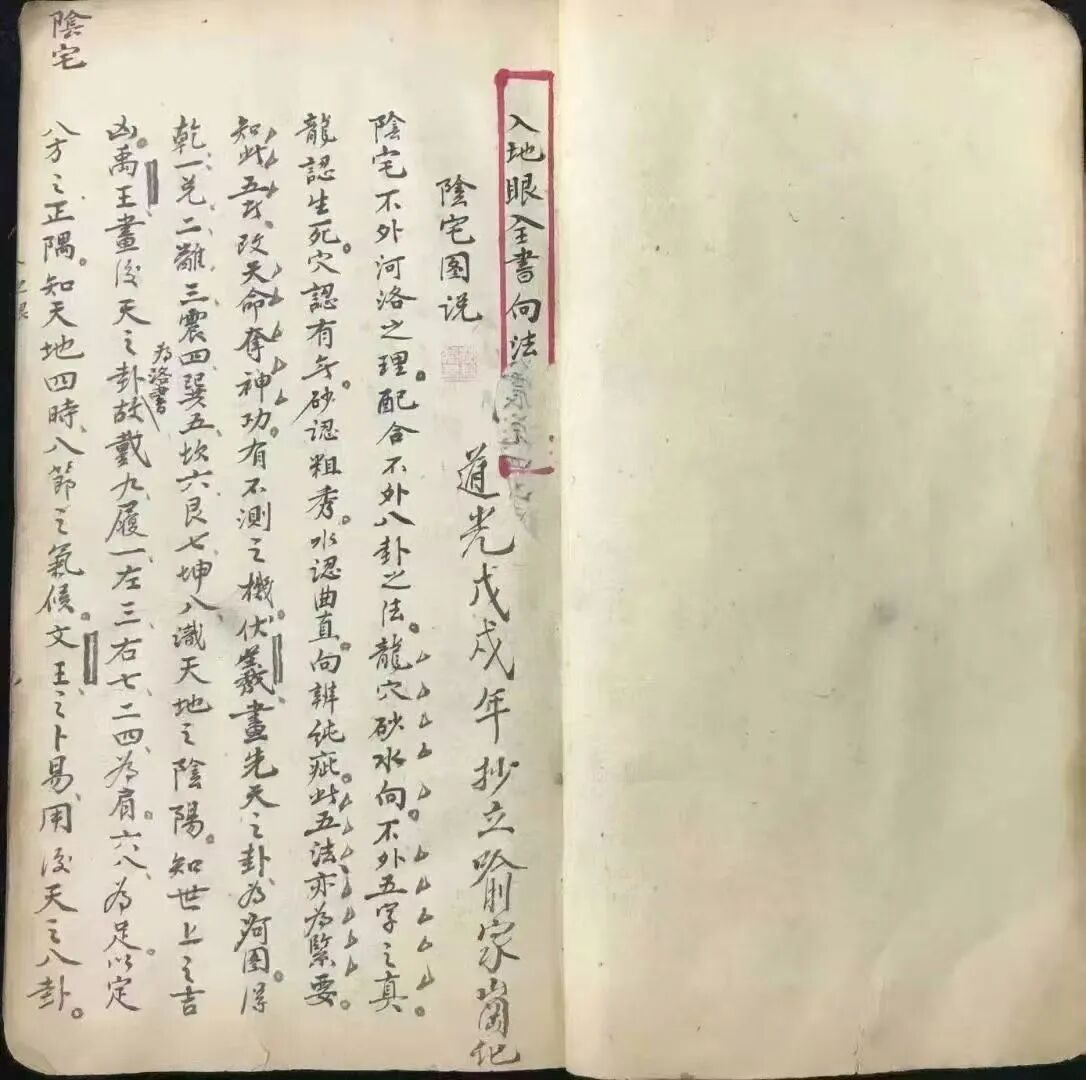 入地眼全書向法
陰宅图说
道光戊戌年抄立喻家崗也
陰宅不外河洛之理。配合不外八卦之法。龍穴砂水向。不外五字之真。
龍認生死。穴認有兯。砂認粗秀。水認曲直。向辨純疵。此五法亦为緊要。
知此五方、改天命奪神功。有不測之機。伏羲畫先天之卦、为河图。得
乾一兌、二離、三震四、巽五、坎六、艮七、坤八、識天地之陰陽。知世上之吉
凶。禹王畫後天之卦故戴九、履一、左三、右七、二四、為肩。六八、为足。以定
为洛書
八方之正隅。知天地四時、八節之氣候。文王之卜易、用後天之八卦。
陰宅